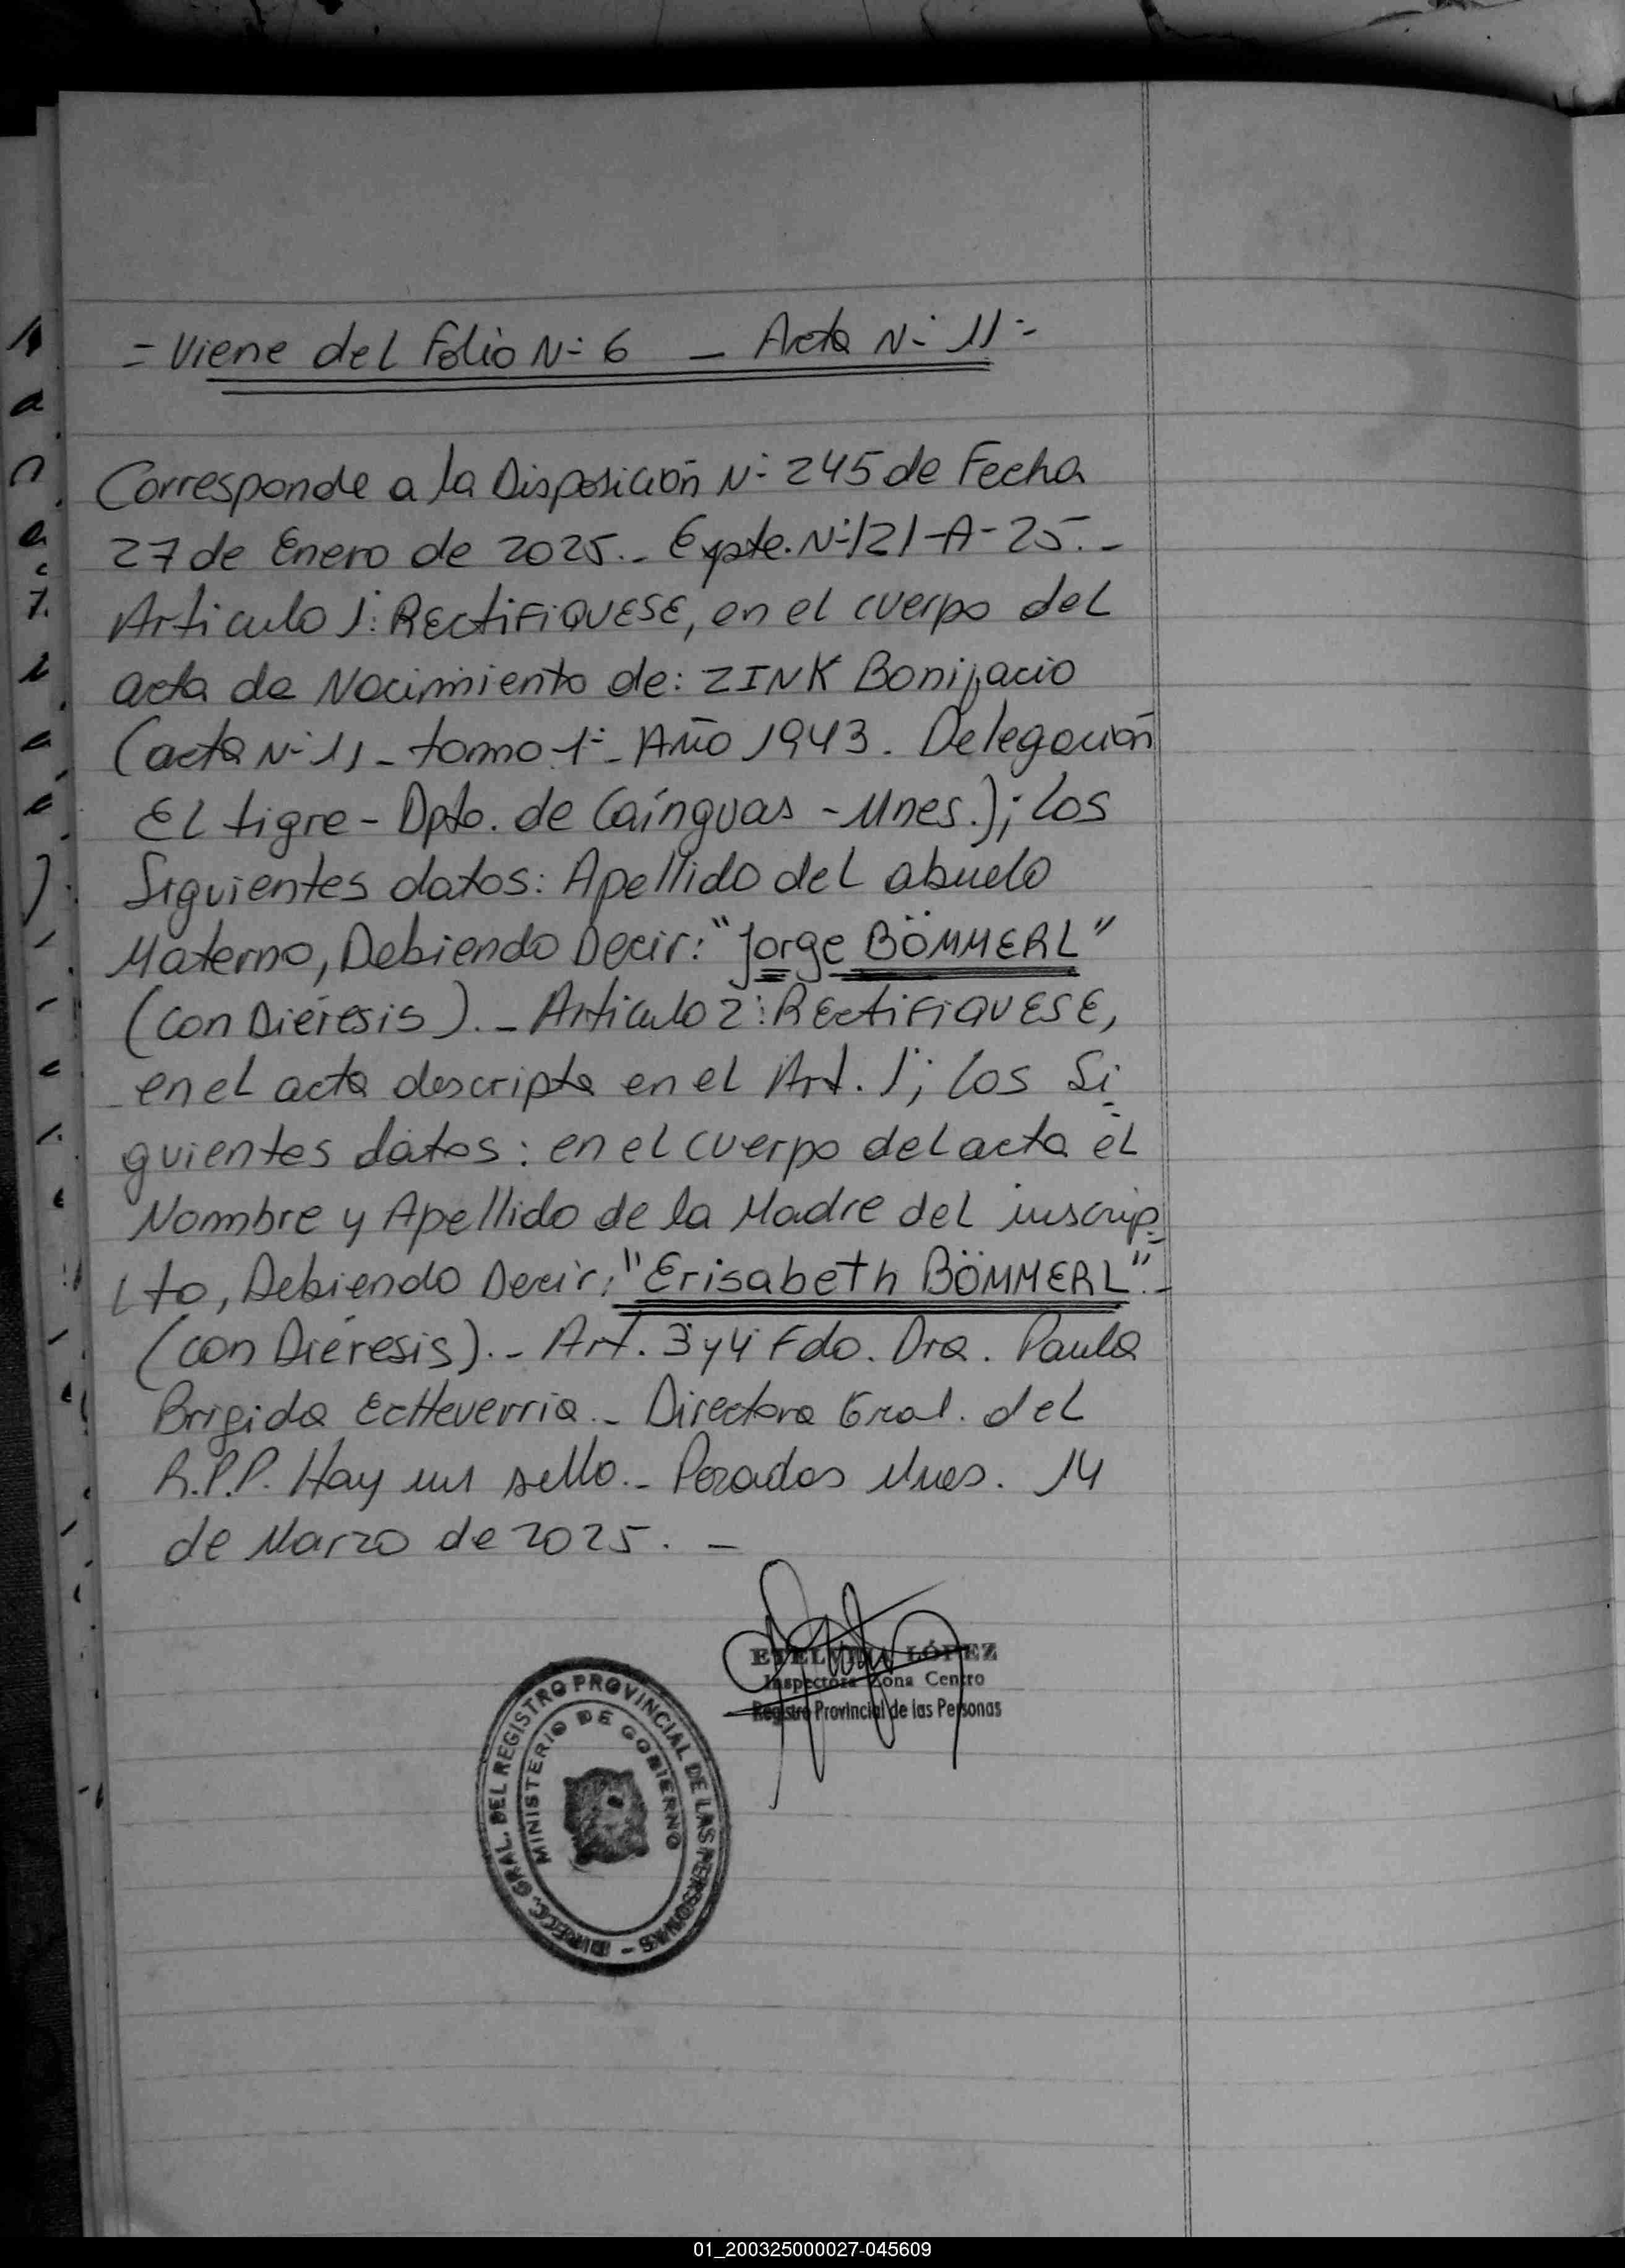 = Viene del Folio N-º 6 _ Acta N-º 11 =
Corresponde a la Disposición N-º 245 de Fecha
27 de Enero de 2025._ Expte. N-º 121-A-25._
Articulo 1º: RECtiFiQUESE, en el cuerpo del
acta de Nacimiento de: ZINK Bonifacio
(acta N-º 11 _ tomo 1º _ Año 1943. Delegación
El tigre - Dpto. de Caínguas - Mnes.); los
Siguientes datos: Apellido del abuelo
Materno, Debiendo Decir: "Jorge BÖMMERL"
(con Diéresis)._ Articulo 2º: RECtiFiQUESE,
en el acta descripta en el Art. 1º; los Si
guientes datos: en el cuerpo del acta el
Nombre y Apellido de la Madre del inscrip
to, Debiendo Decir: "Erisabeth BÖMMERL"._
(con Diéresis)._ Art. 3º y 4º Fdo. Dra. Paula
Brigida Echeverria._ Directora Gral. del
R.P.P. Hay un sello._ Posadas Mnes. 14
de Marzo de 2025. _
LÓPEZ
Inspectora Zona Centro
Registro Provincial de las Personas
DIRECC. GRAL. DEL REGISTRO PROVINCIAL DE LAS PERSONAS -
MINISTERIO DE GOBIERNO
01_200325000027-045609